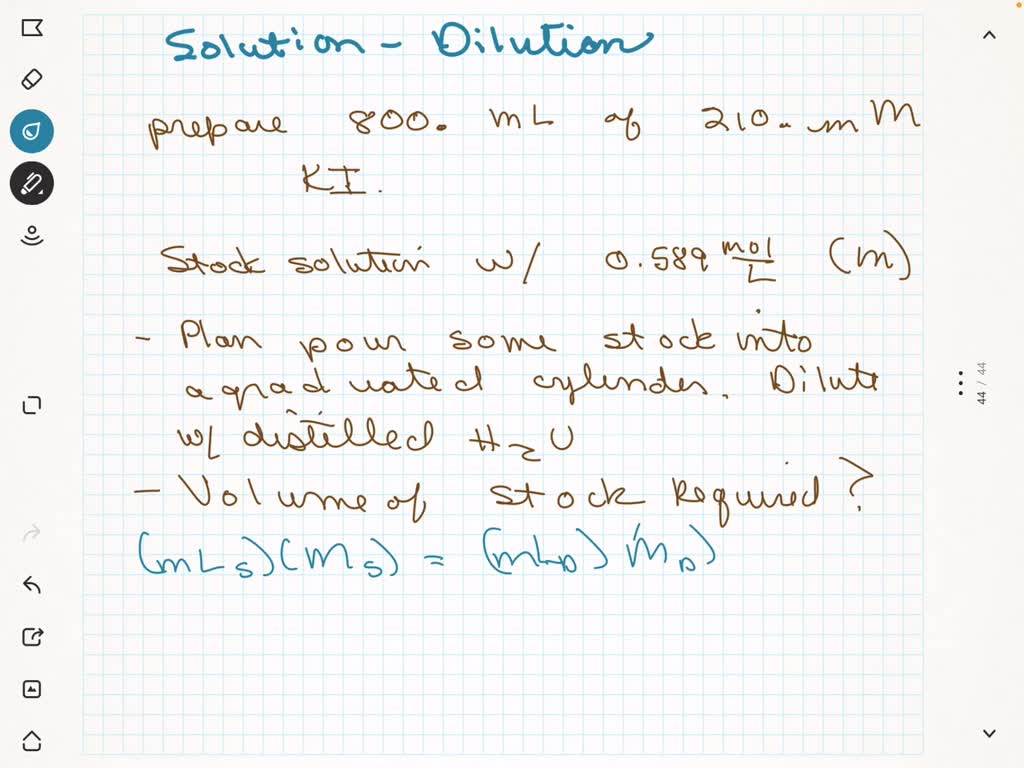 Solution - Dilution
prepare 800. mL of 210. mM
KI.
Stock solution w/ 0.589 mol/L (M)
- Plan pour some stock into
a graduated cylinder. Dilute
w/ distilled H2O
- Volume of stock Required?
(mLS)(MS) = (mLD) MD)
44 / 44